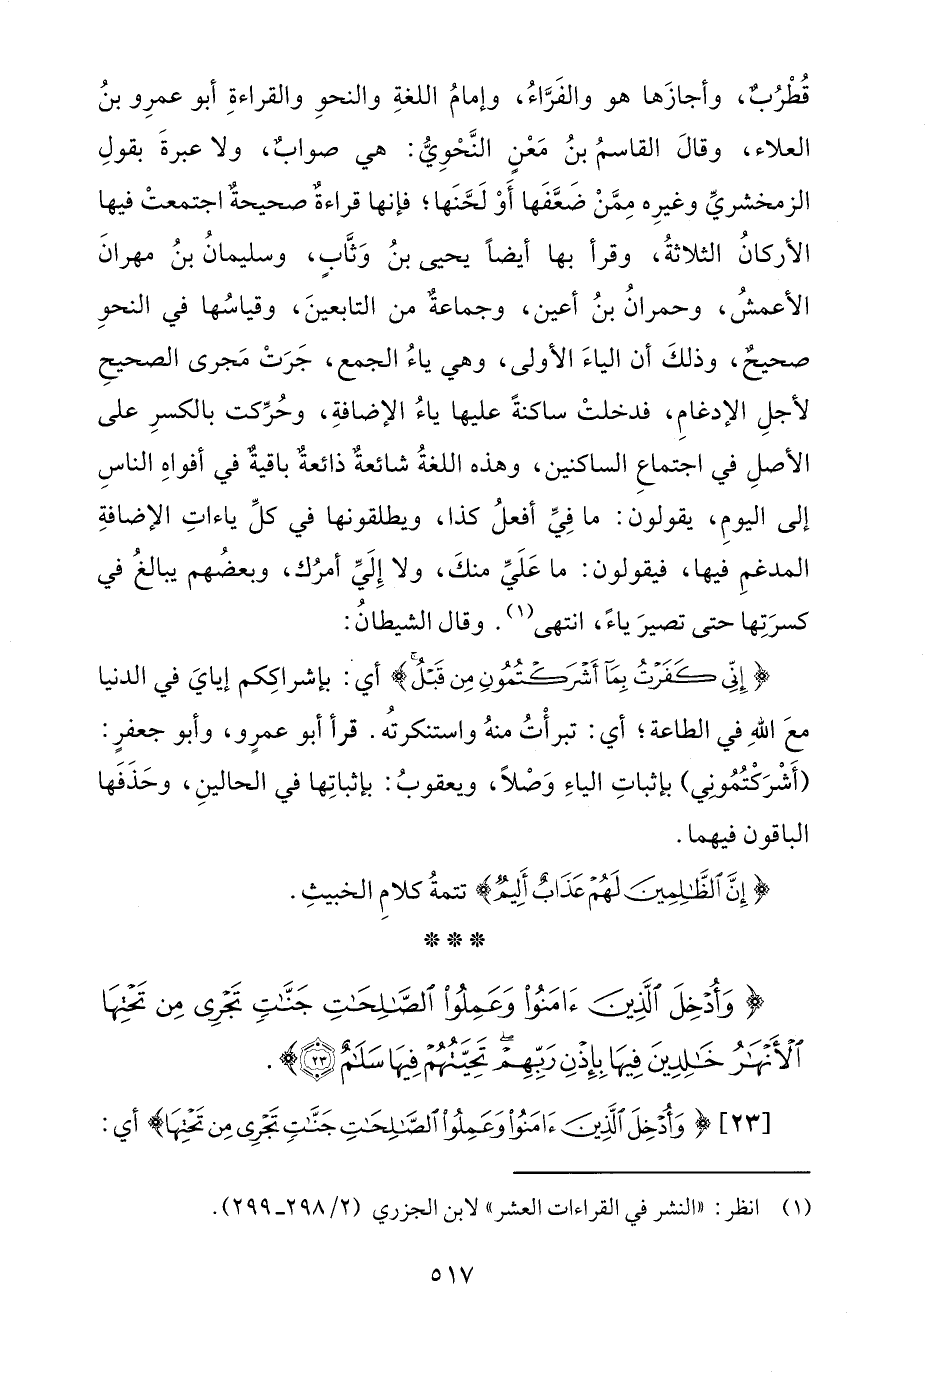 قُطْرُبٌ، وأجازَها هو والفَرَّاءُ، وإمامُ اللغةِ والنحوِ والقراءةِ أبو عمرِو بنُ
العلاء، وقالَ القاسمُ بنُ مَعْنٍ النَّحْوِيُّ: هي صوابٌ، ولا عبرةَ بقولِ
الزمخشريِّ وغيرِه مِمَّنْ ضَعَّفَها أَوْ لَحَّنَها؛ فإنها قراءةٌ صحيحةٌ اجتمعتْ فيها
الأركانُ الثلاثةُ، وقرأ بها أيضاً يحيى بنُ وَثَّابٍ، وسليمانُ بنُ مهرانَ
الأعمشُ، وحمرانُ بنُ أعين، وجماعةٌ من التابعينَ، وقياسُها في النحوِ
صحيحٌ، وذلكَ أن الياءَ الأولى، وهي ياءُ الجمع، جَرَتْ مَجرى الصحيحِ
لأجلِ الإدغامِ، فدخلتْ ساكنةً عليها ياءُ الإضافةِ، وحُرِّكت بالكسرِ على
الأصلِ في اجتماعِ الساكنين، وهذه اللغةُ شائعةٌ ذائعةٌ باقيةٌ في أفواهِ الناسِ
إلى اليومِ، يقولون: ما فِيِّ أفعلُ كذا، ويطلقونها في كلِّ ياءاتِ الإضافةِ
المدغمِ فيها، فيقولون: ما عَلَيِّ منكَ، ولا إِلَيِّ أمرُك، وبعضُهم يبالغُ في
كسرَتِها حتى تصيرَ ياءً، انتهى(١). وقال الشيطانُ:
﴿ إِنِّى كَفَرْتُ بِمَآ أَشْرَكْتُمُونِ مِن قَبْلُ ۚ﴾ أي: بإشراكِكم إيايَ في الدنيا
معَ اللهِ في الطاعة؛ أي: تبرأْتُ منهُ واستنكرتُه. قرأ أبو عمرٍو، وأبو جعفرٍ:
(أَشْرَكْتُمُونِي) بإثباتِ الياءِ وَصْلاً، ويعقوبُ: بإثباتِها في الحالينِ، وحَذَفَها
الباقون فيهما.
﴿ إِنَّ ٱلظَّٰلِمِينَ لَهُمْ عَذَابٌ أَلِيمٌ﴾ تتمةُ كلامِ الخبيثِ.
***
﴿ وَأُدْخِلَ ٱلَّذِينَ ءَامَنُوا۟ وَعَمِلُوا۟ ٱلصَّٰلِحَٰتِ جَنَّٰتٍ تَجْرِى مِن تَحْتِهَا
ٱلْأَنْهَٰرُ خَٰلِدِينَ فِيهَا بِإِذْنِ رَبِّهِمْ ۖ تَحِيَّتُهُمْ فِيهَا سَلَٰمٌ ٢٣﴾.
[٢٣] ﴿ وَأُدْخِلَ ٱلَّذِينَ ءَامَنُوا۟ وَعَمِلُوا۟ ٱلصَّٰلِحَٰتِ جَنَّٰتٍ تَجْرِى مِن تَحْتِهَا﴾ أي:
(١) انظر: «النشر في القراءات العشر» لابن الجزري (٢/ ٢٩٨ـ٢٩٩).
٥١٧